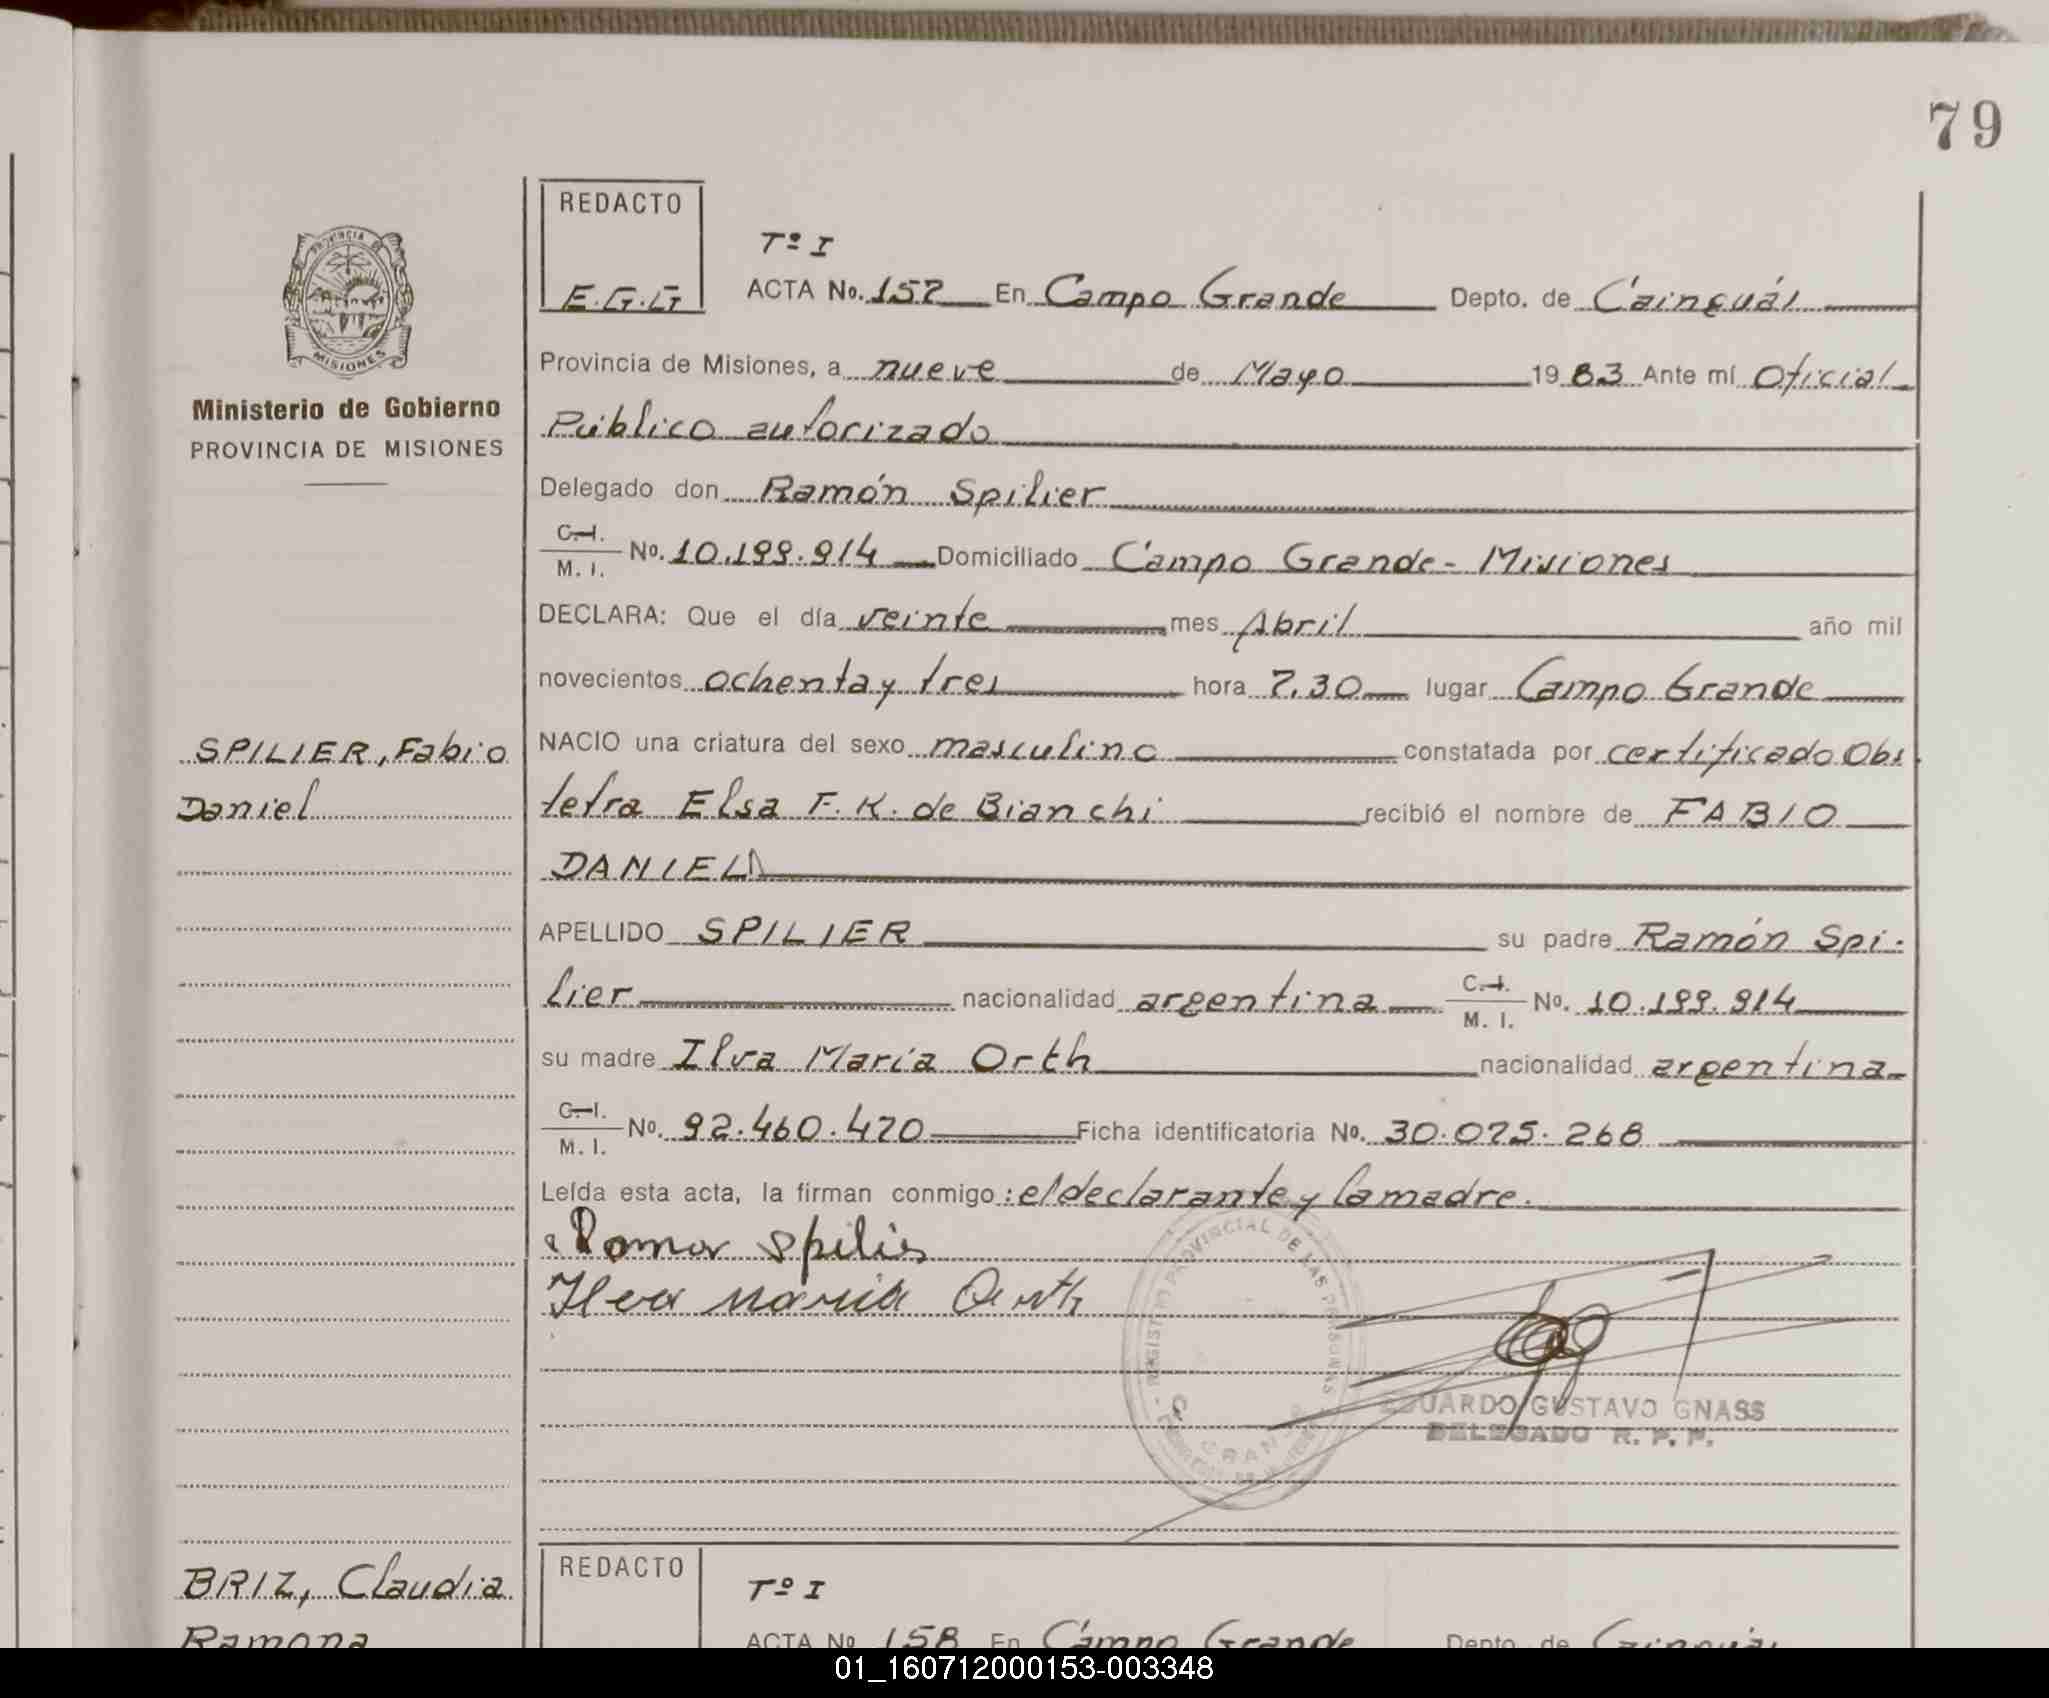 79
REDACTO
E.G.G
Tº I
ACTA No. 157 En Campo Grande Depto. de Cainguás
PROVINCIA DE
MISIONES
Ministerio de Gobierno
PROVINCIA DE MISIONES
Provincia de Misiones, a nueve de Mayo 1983 Ante mí Oficial
Público autorizado
Delegado don Ramón Spilier
C.I.
M. I. No. 10.199.914 Domiciliado Campo Grande - Misiones
DECLARA: Que el día veinte mes Abril año mil
novecientos ochenta y tres hora 7.30 lugar Campo Grande
SPILIER, Fabio
Daniel
NACIO una criatura del sexo masculino constatada por certificado Obs
tetra Elsa F. K. de Bianchi recibió el nombre de FABIO
DANIEL
APELLIDO SPILIER su padre Ramón Spi-
lier nacionalidad argentina C.I. M. I. No. 10.199.914
su madre Ilva María Orth nacionalidad argentina
C.I.
M. I. No. 92.460.470 Ficha identificatoria No. 30.075.268
Leída esta acta, la firman conmigo: el declarante y la madre.
Ramon Spilier
Ilva Maria Orth
REGISTRO PROVINCIAL DE LAS PERSONAS
EDUARDO GUSTAVO GNASS
DELEGADO R. P. P.
BRIZ, Claudia
Ramona
REDACTO
Tº I
ACTA No 158 En Campo Grande Depto. de Cainguás
01_160712000153-003348